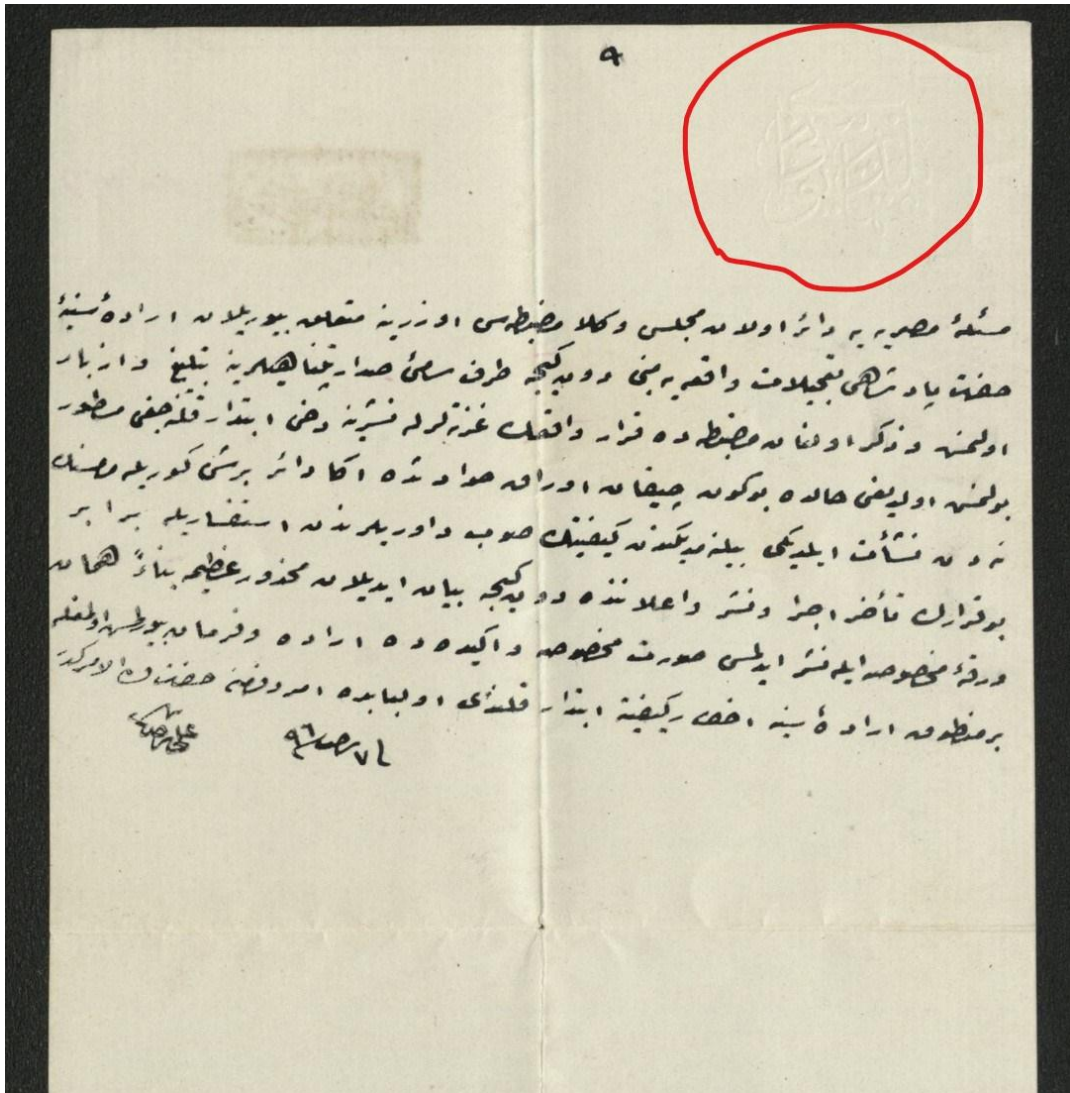 مسئلهٔ مصریه یه دائر اولان مجلس وکلا مضبطه سی اوزرینه متعلق بیوریلان ارادهٔ سنیهٔ
حضرت پادشاهی تعجیلات واقعه یه مبنی دون کیجه طرف سامئ صدارتپناهیلرینه تبلیغ و ازبار
اولنمش و ذکر اولنان مضبطه ده قرار واقعك غزته لرله نشرینه دخی ابتدار قلنه جغی مسطور
بولنمش اولدیغی حالده بوکون چیقان اوراق حوادثده اکا دائر برشی کوریله مامسنك
نه دن نشأت ایلدیکی بیلنه مدیکندن کیفیتك صوب داوریلرندن استفساریله برابر
بوقرارك تأخر اجرا و نشر و اعلاننده دون کیجه بیان ایدیلان محذور عظیمه بناءً همان
ورقهٔ مخصوصه ایله نشر ایدلمسی صورت مخصوصه و اکیده ده اراده و فرمان بیورلمش اولمغله
بر منطوق ارادهٔ سنیه اخطار کیفیته ابتدار قلندی اولبابده امر و فرمان حضرت ولی الامرکدر
علی رضا